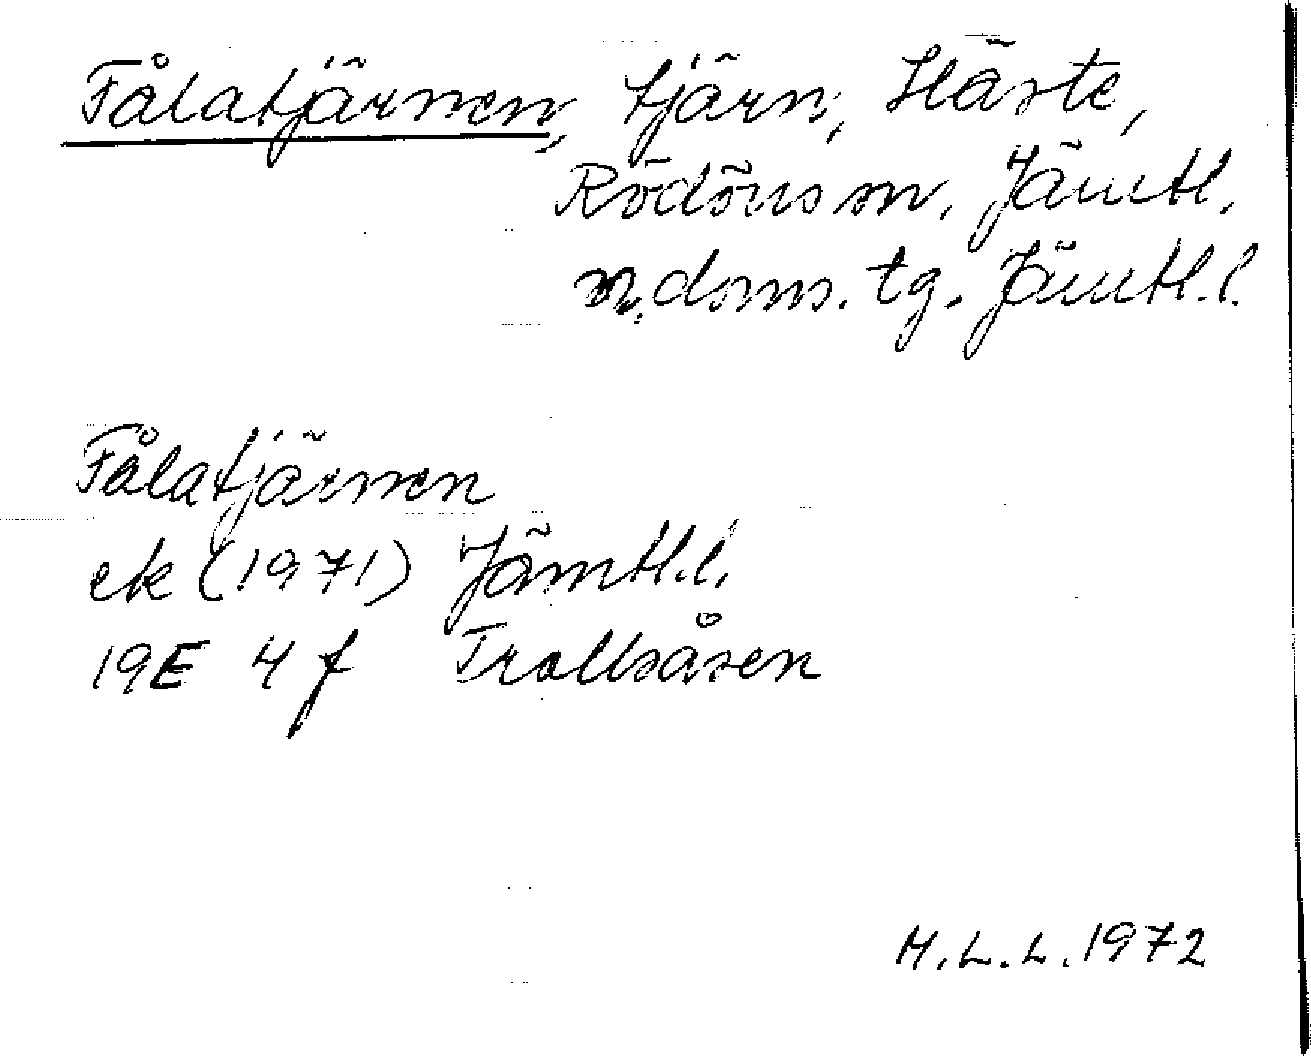 Fålatjärnen, tjärn, Häste,
Rödöns sn, Jämtl.
n. doms. tg. Jämtl. l.
Fålatjärnen
ek (1971) Jämtl. l.
19E 4 f Trollsåsen
M. L. L. 1972